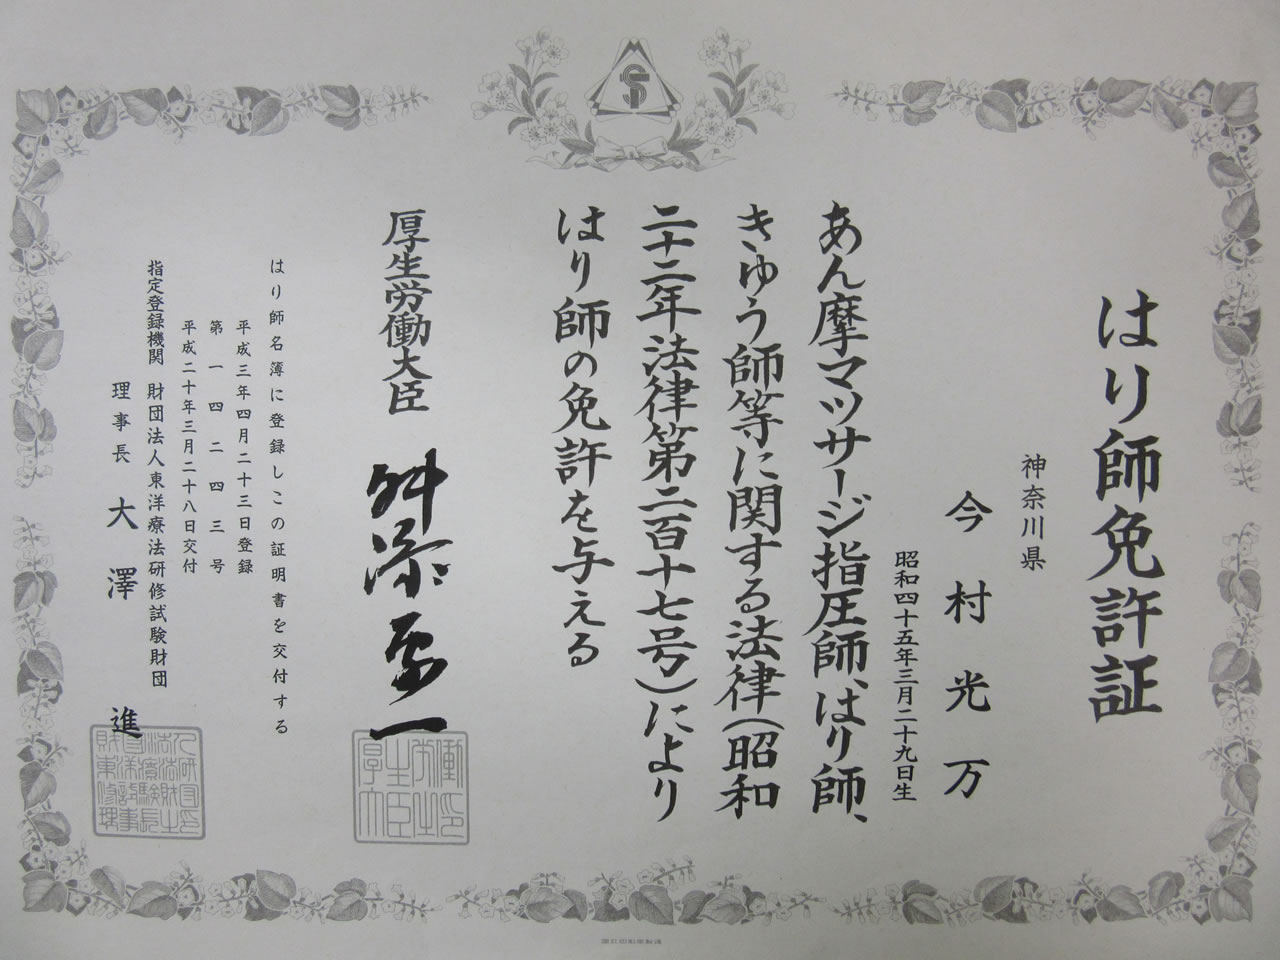 はり師免許証
神奈川県
今村光万
昭和四十五年三月二十九日生
あん摩マツサージ指圧師、はり師、
きゆう師等に関する法律(昭和
二十二年法律第二百十七号)により
はり師の免許を与える
厚生労働大臣 舛添要一
はり師名簿に登録しこの証明書を交付する
平成三年四月二十三日登録
第一四二四三号
平成二十年三月二十八日交付
指定登録機関 財団法人東洋療法研修試験財団
理事長 大澤進